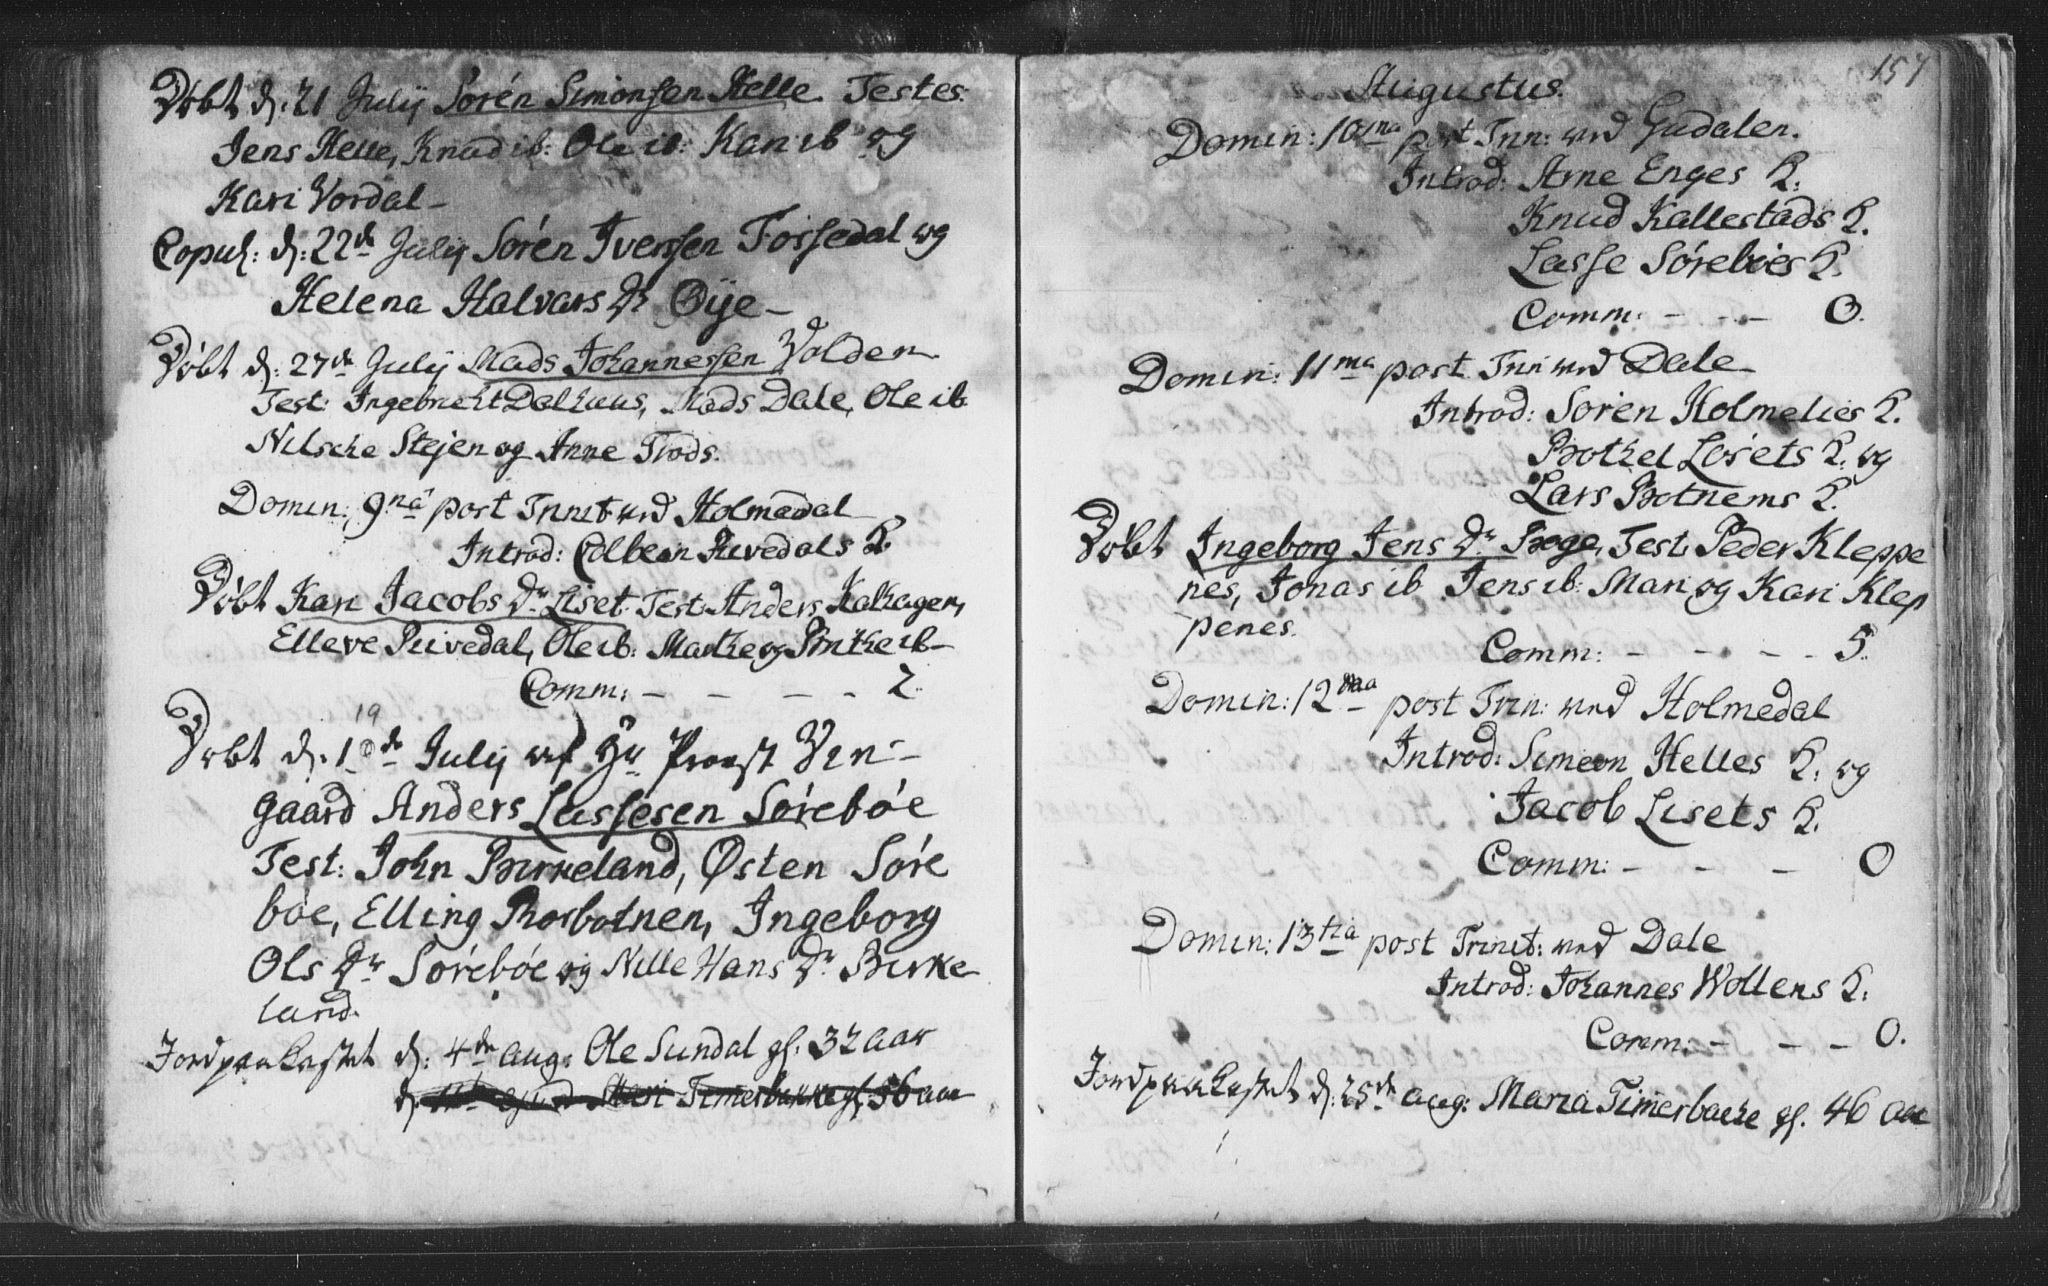 Døbt d: 21 Julij Søren Simonsen Helle Testes:
Jens Helle, Knud ib: Ole ib: Kari ib og
Kari Vordal –
Copul: d: 22de Julij Søren Iversen Fossedal og
Helena Halvars Dr Øije –
Døbt d: 27de Julij Mads Johannessen Volden
Test: Ingebricht Dalhuus, Mads Dale, Ole ib
Nilsche Stejen og Anne Trods.
Domin: 9na post Trinit: ved Holmedal
Introd: Colbein Rivedals K.
Døbt Kari Jacobs Dr Liset Test: Anders Kalhagen,
Elleve Rivedal, Ole ib: Marthe og Brithe ib –
Comm: – – – – 2.
19
Døbt d. de Julij af Hr Provst Ven-
gaard Anders Lassesen Sørebøe
Test: John Birkeland, Østen Søre
bøe, Elling Morbotnen, Ingeborg
Ols Dr Sørebøe og Nille Hans Dr Birke
land.
Jordpaakastet d: 4de aug: Ole Sundal gl. 32 aar
d: Mari Timerbakke gl. 56 aar
157
Augustus.
Domin: 10ma post Trin: ved Gudalen.
Introd: Arne Enges K.
Knud Kallestads K.
Lasse Sørebøes K.
Comm: – – – 0.
Domin: 11ma post Trin ved Dale
Introd: Søren Holmelies K.
Bothel Løsets K. og
Lars Botnems K.
Døbt Ingeborg Jens Dr Boge, Test: Peder Kleppe
nes, Jonas ib Jens ib: Mari og Kari Klep
penes.
Comm: – – – – 5.
Domin: 12ma post Trin: ved Holmedal
Introd: Simeon Helles K. og
Jacob Lisets K.
Comm: – – – 0
Domin: 13tia post Trinit: ved Dale
Introd: Johannes Wollens K.
Comm: – – – 0.
Jordpaakastet d: 25de aug: Maria Timerbacke gl. 46 aar